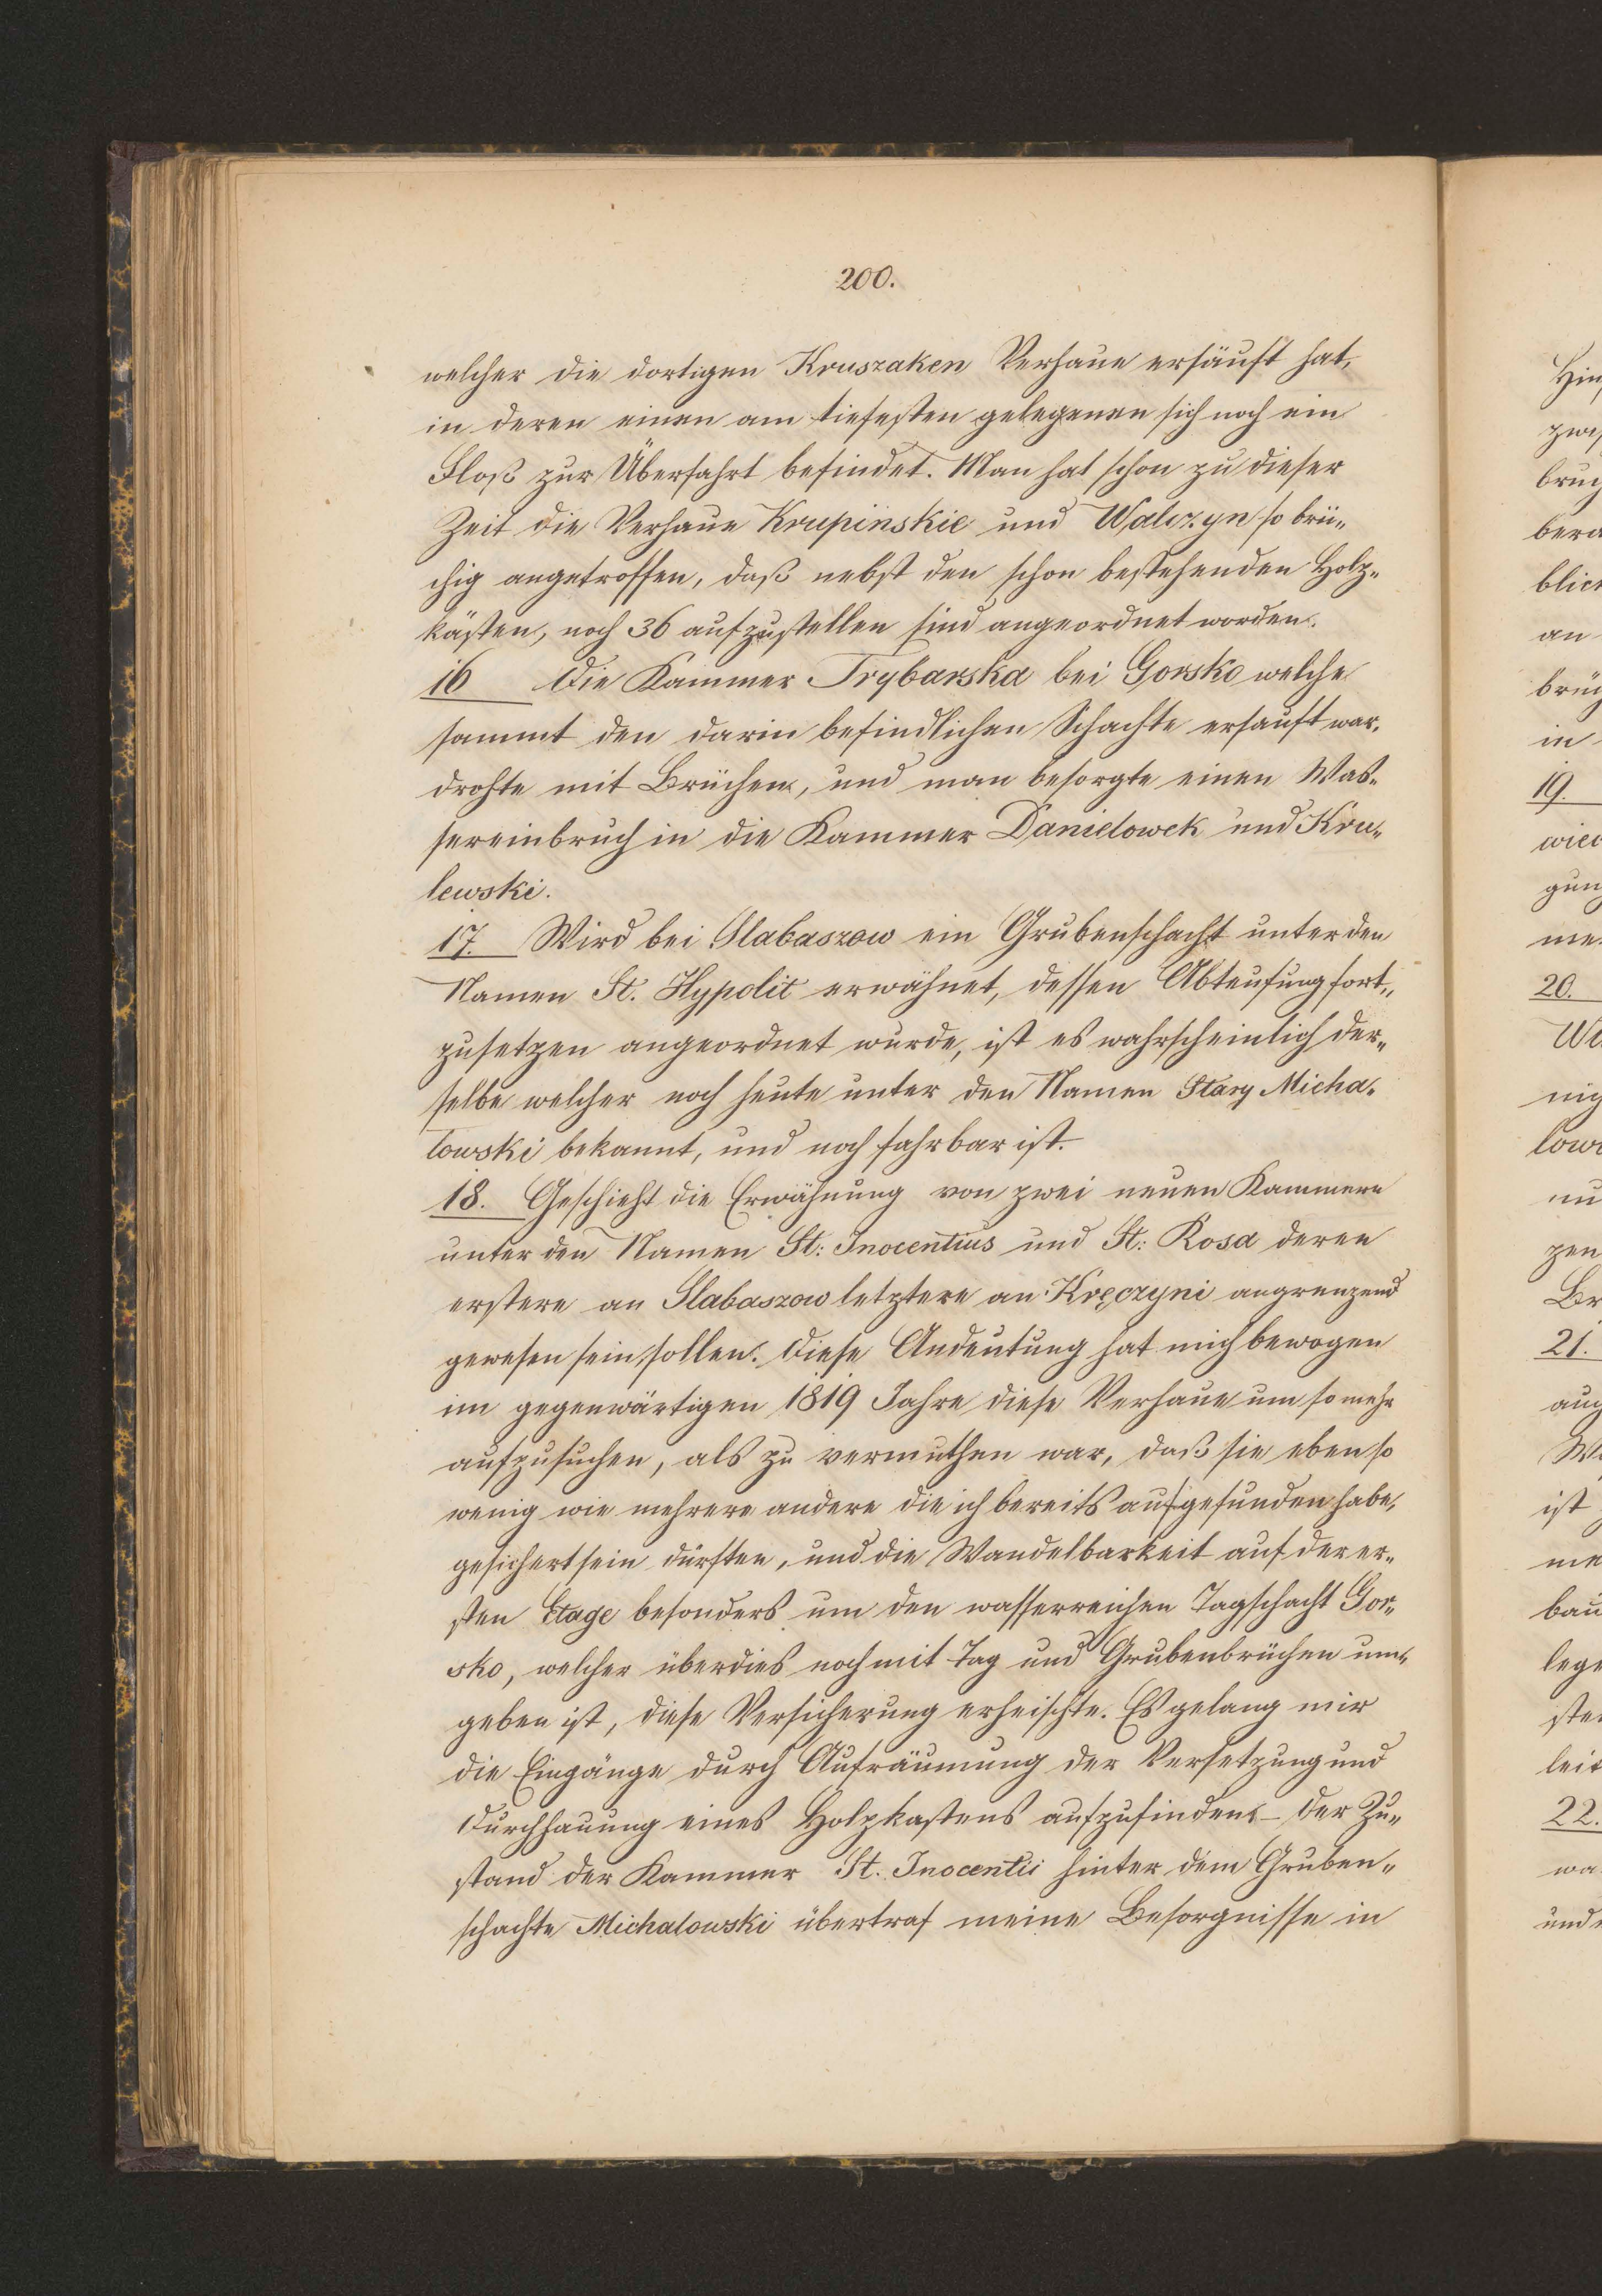 200.
welcher die dortigen Kruszaken Verhaue ersäuft hat,
in deren einen am tiefesten gelegenen sich noch ein
Floß zur Überfahrt befindet. Man hat schon zu dieser
Zeit die Verhaue Krupinskie und Walczyn so brü„
chig angetroffen, daß nebst den schon bestehenden Holz„
kästen, noch 36 aufzustellen sind angeordnet worden.
16 Die Kammer Trybarska bei Gorsko welche
sammt den darin befindlichen Schachte ersäuft war,
drohte mit Brüchen, und man besorgte einen Was„
sereinbruch in die Kammer Danielowek und Kru„
lewski.
17. Wird bei Slabaszow ein Grubenschacht unter den
Namen St. Hypolit erwähnet, dessen Abteufung fort„
zusetzen angeordnet wurde, ist es wahrscheinlich der„
selbe welcher noch heute unter den Namen Stary Micha„
lowski bekannt, und noch fahrbar ist.
18. Geschieht die Erwähnung von zwei neuen Kammern
unter den Namen St: Inocentius und St: Rosa deren
erstere an Slabaszow letztere an Kręczyni angrenzend
gewesen sein sollen. Diese Andeutung hat mich bewogen
im gegenwärtigen 1819 Jahre diese Verhaue um so mehr
aufzusuchen, als zu vermuthen war, daß sie eben so
wenig wie mehrere andere die ich bereits aufgefunden habe,
gesichert sein dürften, und die Wandelbarkeit auf der er„
sten Etage besonders um den wasserreichen Tagschacht Gor„
sko, welcher überdies noch mit Tag und Grubenbrüchen um„
geben ist, diese Versicherung erheischte. Es gelang mir
die Eingänge durch Aufräumung der Versetzung und
Durchhauung eines Holzkastens aufzufinden – der Zu„
stand der Kammer St. Inocentii hinter dem Gruben„
schachte Michalowski übertraf meine Besorgnisse in
19.
20.
21.
22.